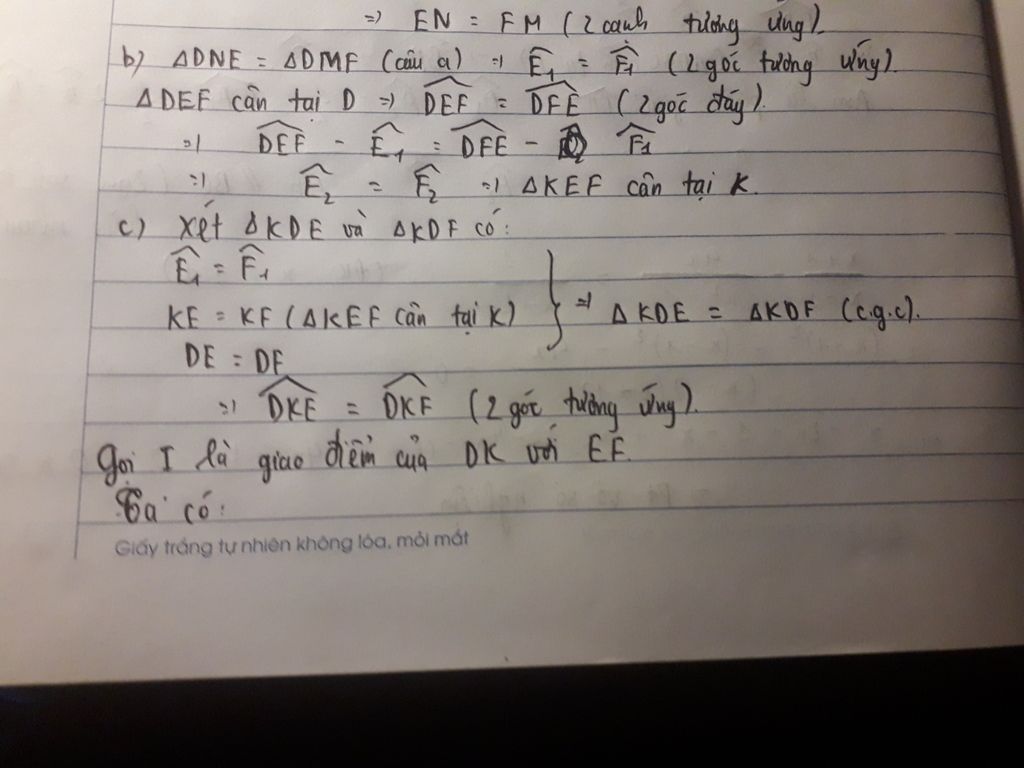 => EN = FM (2 cạnh tương ứng)
b) ΔDNE = ΔDMF (câu a) => Ê₁ = F̂₁ (2 góc tương ứng).
ΔDEF cân tại D => DEF̂ = DFÊ (2 góc đáy).
=> DEF̂ - Ê₁ = DFÊ - F̂₁
=> Ê₂ = F̂₂ => ΔKEF cân tại K.
c) Xét ΔKDE và ΔKDF có:
Ê₁ = F̂₁
KE = KF (ΔKEF cân tại K) } => ΔKDE = ΔKDF (c.g.c).
DE = DF
=> DKÊ = DKF̂ (2 góc tương ứng).
Gọi I là giao điểm của DK với EF.
Ta có:
Giấy trắng tự nhiên không lóa, mỏi mắt